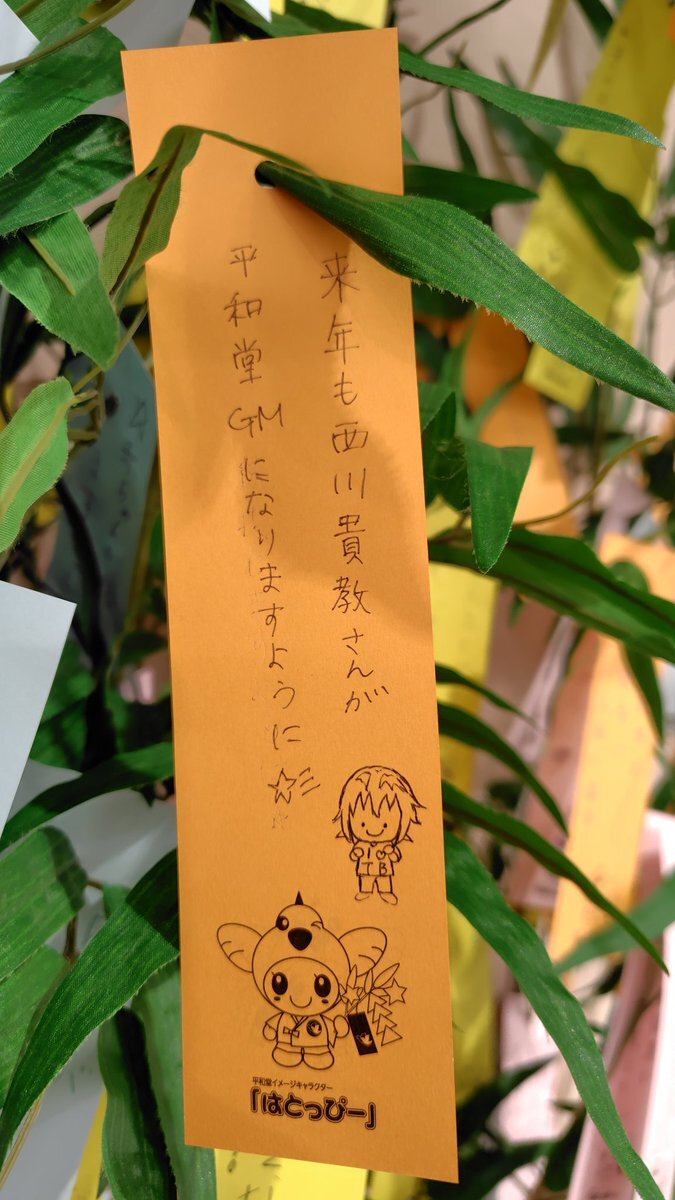 来年も西川貴教さんが
平和堂GMになりますように☆彡
I
TB
平和堂イメージキャラクター
「はとっぴー」